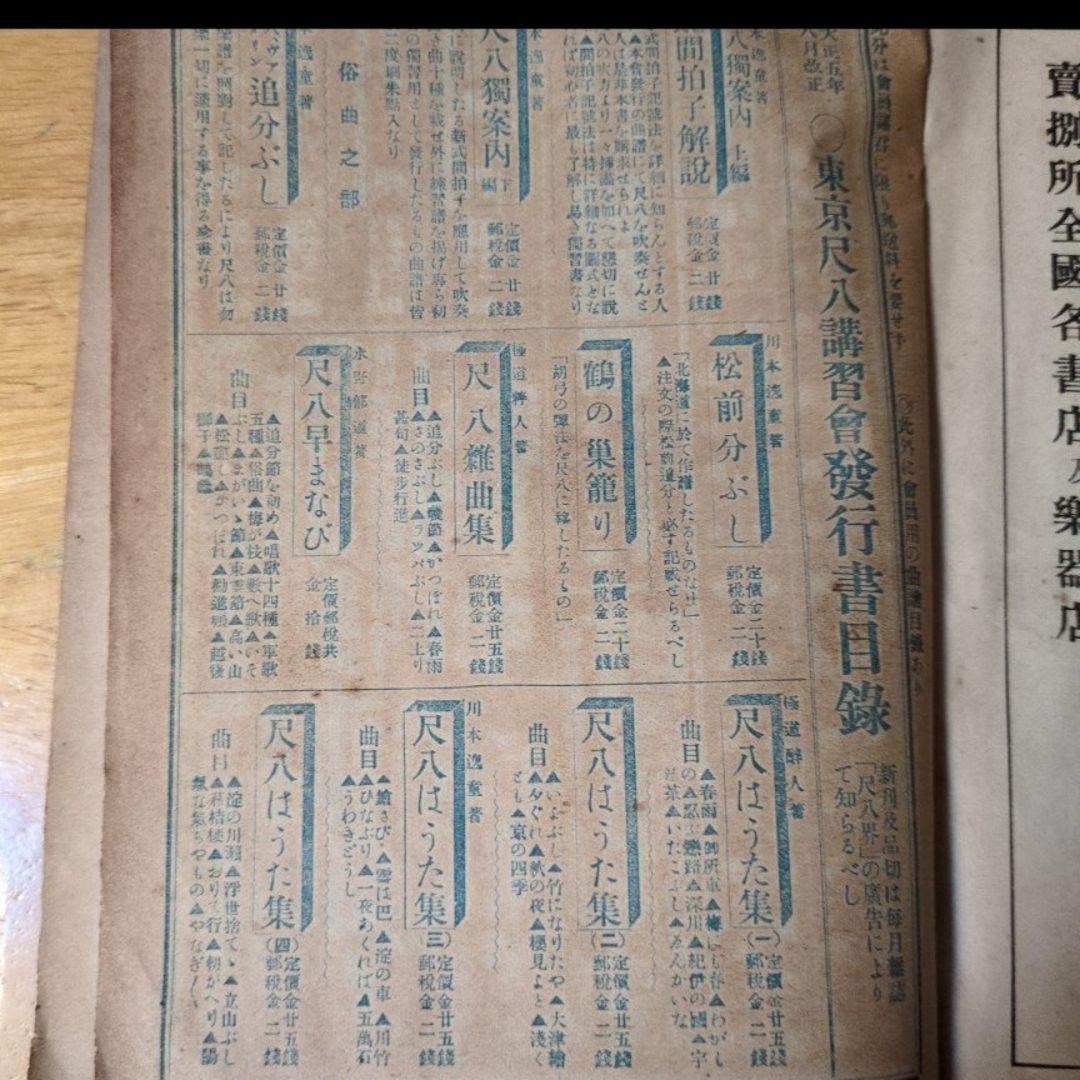 賣捌所全國各書店及樂器店
大正五年
八月改正
〇東京尺八講習會發行書目錄
新刊及品切は毎月雜誌
「尺八界」の廣告により
て知らるべし
八獨案內 上編
間拍子解說
定價金廿錢
郵稅金二錢
式間拍子記號法を詳細に知らんとする人
▲本會發行の曲譜にて尺八を吹奏せんと
人は是非本書を購求せられよ
八の吹方より一々揷畫を加へて懇切に說
▲間拍子記號法は特に詳細なる圖式とな
れば初心者に最も了解し易き獨習書なり
本逸童著
尺八獨案內 下編
定價金廿錢
郵稅金二錢
に說明したる新式間拍子を應用して吹奏
き曲十種を載せ外に練習譜を揭げ專ら初
の獨習用として發行したるもの曲譜は皆
二度刷朱點入なり
俗曲之部
本逸童著
追分ぶし
定價金廿錢
郵稅金二錢
樂譜を照對して記したるにより尺八は勿
樂一切に適用する事を得る珍書なり
川本逸童著
松前分ぶし
定價金二十錢
郵稅金二錢
「北海道に於て作譜したるものなり」
▲注文の際松前追分と必ず記載せらるべし
鶴の巢籠り
定價金二十錢
郵稅金二錢
「胡弓の彈法を尺八に移したるもの」
極道粹人著
尺八雜曲集
定價金廿五錢
郵稅金二錢
曲目
▲追分ぶし▲磯節▲かつぽれ▲春雨
▲さのさぶし▲ラツパぶし▲二上り
甚句▲徒步行進
水野郁道著
尺八早まなび
定價郵稅共
金拾錢
曲目
▲追分節を初め▲唱歌十四種▲軍歌
五種▲俗曲▲梅が枝▲數へ歌▲いそ
ぶし▲まがいゝ節▲東雲節▲高い山
▲松盡し▲かつぽれ▲勸進帳▲越後
獅子▲鶴龜
極道醉人著
尺八はうた集(一)
定價金廿五錢
郵稅金二錢
曲目
▲春雨▲御所車▲梅にも春▲わがも
の▲忍ぶ戀路▲深川▲紀伊の國▲宇
治茶▲いたこぶし▲ゑんかいな
尺八はうた集(二)
定價金廿五錢
郵稅金二錢
曲目
▲いよぶし▲竹になりたや▲大津繪
▲夕ぐれ▲秋の夜▲櫻見よと▲淺く
とも▲京の四季
川本逸童著
尺八はうた集(三)
定價金廿五錢
郵稅金二錢
曲目
▲鎗さび▲雲は巴▲淀の車▲川竹
▲ひなぶり▲一夜あくれば▲五萬石
▲うわきどうし
尺八はうた集(四)
定價金廿五錢
郵稅金二錢
曲目
▲淀の川瀨▲浮世捨てゝ▲立山ぶし
▲萩桔梗▲おりて行▲朝がへり▲陽
氣な浮ちやもの▲やなぎ